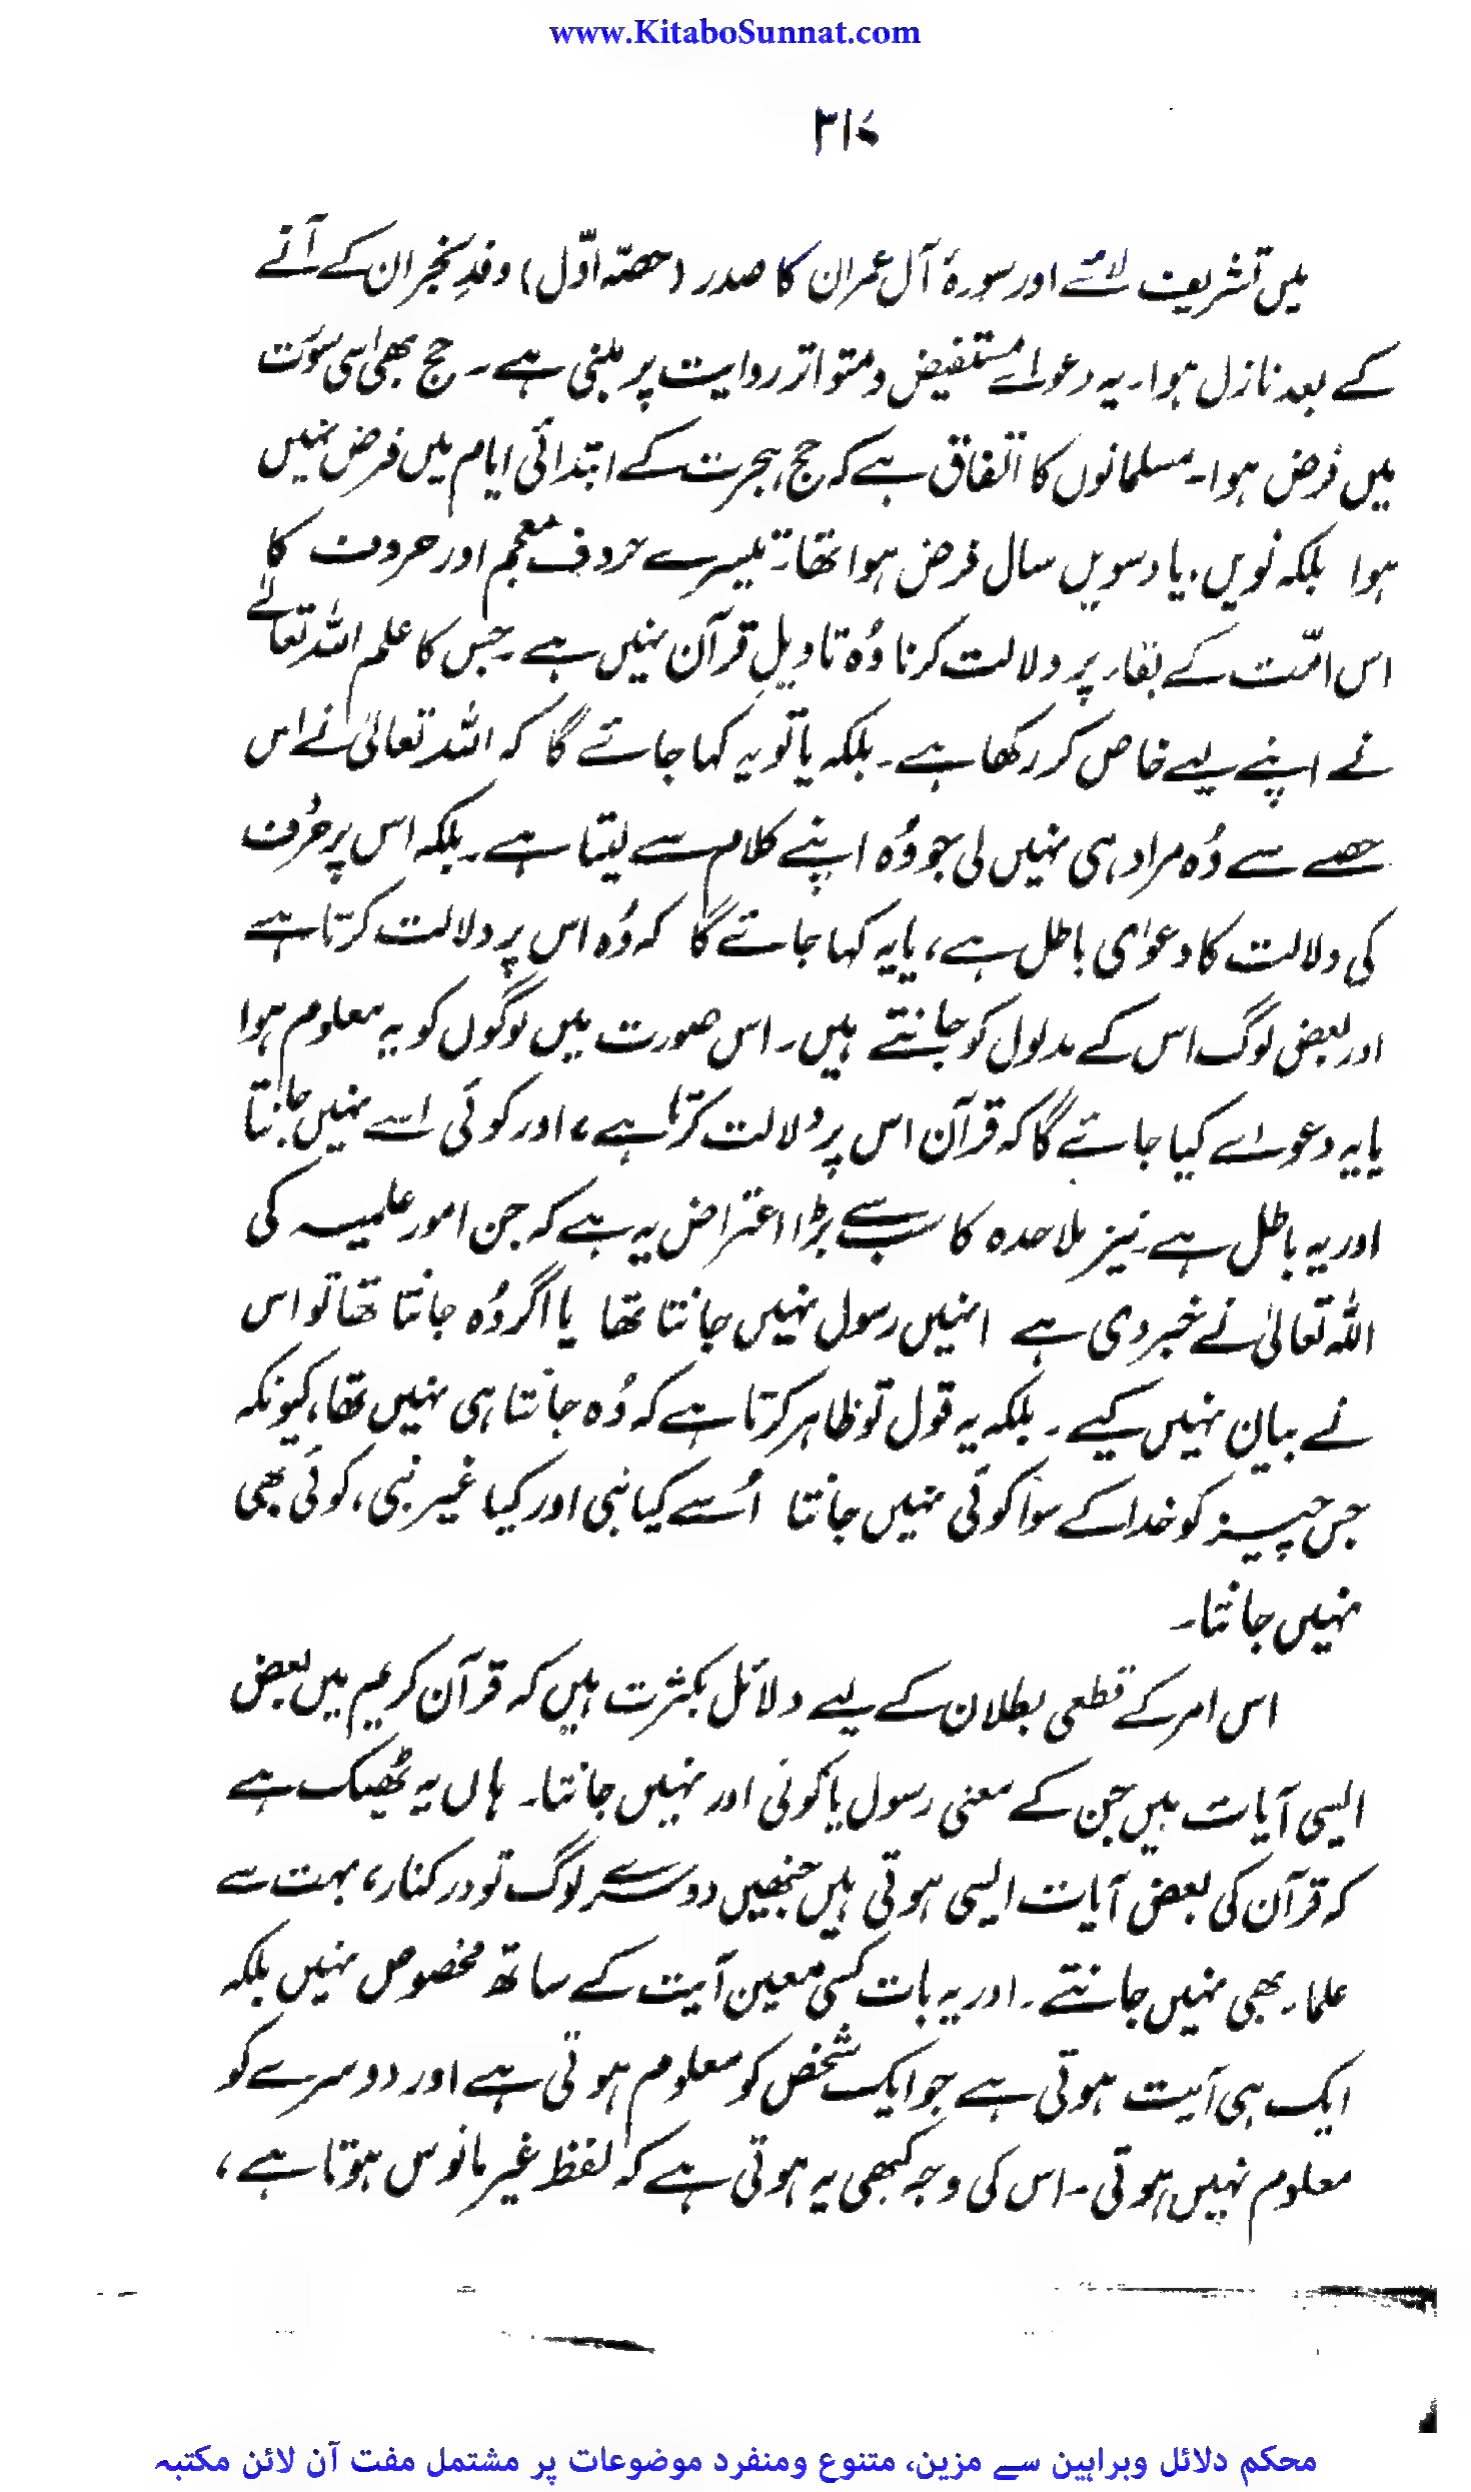 www.KitaboSunnat.com
۳۱۷
میں تشریف لائے اور سورۂ آل عمران کا صدر (حصّہ اوّل) وفدِ نجران کے آنے
کے بعد نازل ہوا۔ یہ دعوےٰ مستفیض و متواتر روایت پر مبنی ہے۔ حج بھی اسی سورت
میں فرض ہوا۔ مسلمانوں کا اتفاق ہے کہ حج، ہجرت کے ابتدائی ایام میں فرض نہیں
ہوا بلکہ نویں، یا دسویں سال فرض ہوا تھا۔ تیسرے حروف معجم اور حروف کا
اس امّت کے بقاء پر دلالت کرنا وُہ تاویلِ قرآن نہیں ہے۔ جس کا علم اللہ تعالےٰ
نے اپنے لیے خاص کر رکھا ہے۔ بلکہ یا تو یہ کہا جائے گا کہ اللہ تعالیٰ نے اس
حصے سے وُہ مراد ہی نہیں لی جو وُہ اپنے کلام سے لیتا ہے۔ بلکہ اس پر حُرف
کی دلالت کا دعوٰی باطل ہے، یا یہ کہا جائے گا کہ وُہ اس پر دلالت کرتا ہے
اور بعض لوگ اس کے مدلول کو جانتے ہیں۔ اس صورت میں لوگوں کو یہ معلوم ہوا
یا یہ دعوےٰ کیا جائے گا کہ قرآن اس پر دلالت کرتا ہے، اور کوئی اسے نہیں جانتا
اور یہ باطل ہے۔ نیز ملاحدہ کا سب سے بڑا اعتراض یہ ہے کہ جن امور علمیہ کی
اللہ تعالیٰ نے خبر دی ہے انہیں رسول نہیں جانتا تھا یا اگر وُہ جانتا تھا تو اس
نے بیان نہیں کیے۔ بلکہ یہ قول تو ظاہر کرتا ہے کہ وُہ جانتا ہی نہیں تھا، کیونکہ
جس چیز کو خدا کے سوا کوئی نہیں جانتا اُسے کیا نبی اور کیا غیر نبی، کوئی بھی
نہیں جانتا۔
اس امر کے قطعی بطلان کے لیے دلائل بکثرت ہیں کہ قرآن کریم میں بعض
ایسی آیات ہیں جن کے معنی رسول یا کوئی اور نہیں جانتا۔ ہاں یہ ٹھیک ہے
کہ قرآن کی بعض آیات ایسی ہوتی ہیں جنھیں دوسرے لوگ تو درکنار، بہت سے
علماء بھی نہیں جانتے۔ اور یہ بات کسی معین آیت کے ساتھ مخصوص نہیں بلکہ
ایک ہی آیت ہوتی ہے جو ایک شخص کو معلوم ہوتی ہے اور دوسرے کو
معلوم نہیں ہوتی۔ اس کی وجہ کبھی یہ ہوتی ہے کہ لفظ غیر مانوس ہوتا ہے،
محکم دلائل وبراہین سے مزین، متنوع ومنفرد موضوعات پر مشتمل مفت آن لائن مکتبہ